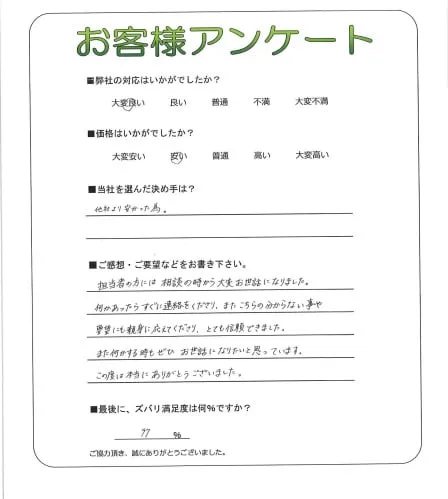 お客様アンケート
■弊社の対応はいかがでしたか?
大変良い 良い 普通 不満 大変不満
■価格はいかがでしたか?
大変安い 安い 普通 高い 大変高い
■当社を選んだ決め手は?
他社より安かった為。
■ご感想・ご要望などをお書き下さい。
担当者の方には相談の時から大変お世話になりました。
何かあったらすぐに連絡をくださり、またこちらの分からない事や
要望にも親身に応えてくださり、とても信頼できました。
また何かする時もぜひお世話になりたいと思っています。
この度は本当にありがとうございました。
■最後に、ズバリ満足度は何%ですか?
97 %
ご協力頂き、誠にありがとうございました。